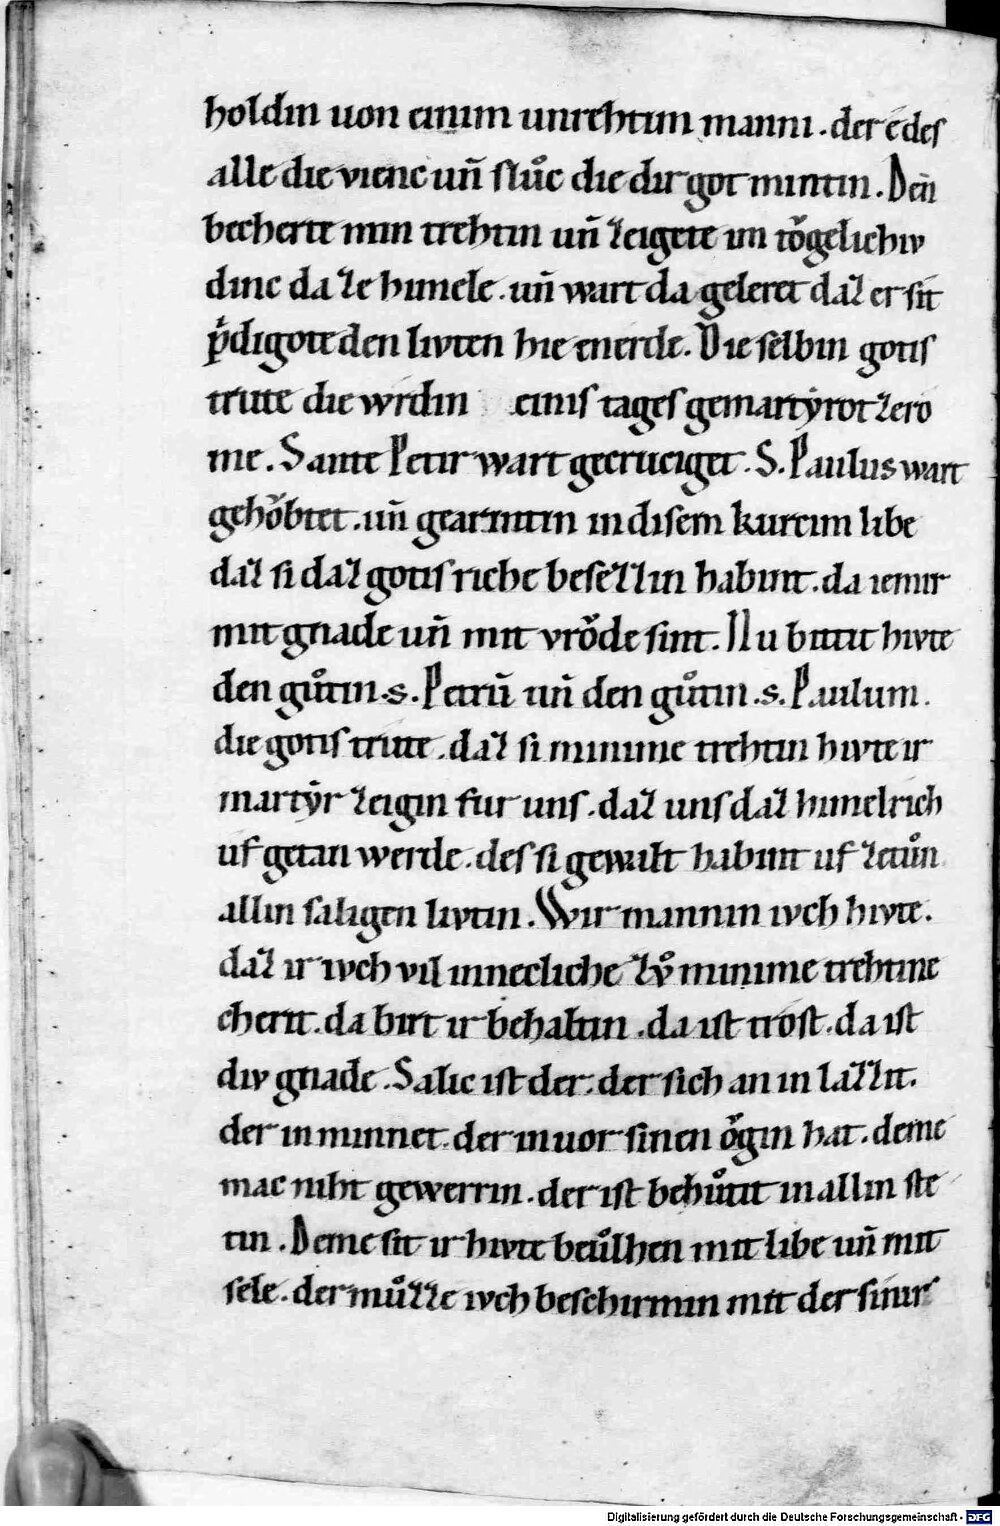 holdin uon einim unrehtim manni . der é des
alle die vienc uñ sluͦc die dir got mintin . Deñ
becherte min trehtin uñ zeigete im toͮgelichiv
dinc da ze himele . uñ wart da geleret daz er sit
p̄digote den livten hie enerde . Die selbin gotis
trute die wrdin einis tages gemartyrot zero
me . Sante Petir wart gecruciget . S . Paulus wart
gehoͮbtet . uñ gearnitin in disem kurcim libe
daz si daz gotis riche besezzin habint . da iemir
mit gnade uñ mit vroͮde sint . Nu bittit hivte
den guͦtin . s . Petrū uñ den guͦtin . s . Paulum .
die gotis trute . daz si minime trehtin hivte ir
martyr zeigin fur uns . daz uns daz himelrich
uf getan werde . des si gewalt habint uf zetuͦn
allin saligen livtin . Wir mannin ivch hivte .
daz ir ivch vil innecliche zvͦ minime trehtine
chertt . da birt ir behaltin . da ist trost . da ist
div gnade . Salic ist der . der sich an in lazzit .
der in minnet . der in uor sinen oͮgin hat . deme
mac niht gewerrin . der ist behuͦtit in allin ste
tin . Deme sit ir hivte beuolhen mit libe uñ mit
sele . der muͦzze ivch beschirmin mit der sinir
Digitalisierung gefördert durch die Deutsche Forschungsgemeinschaft - DFG